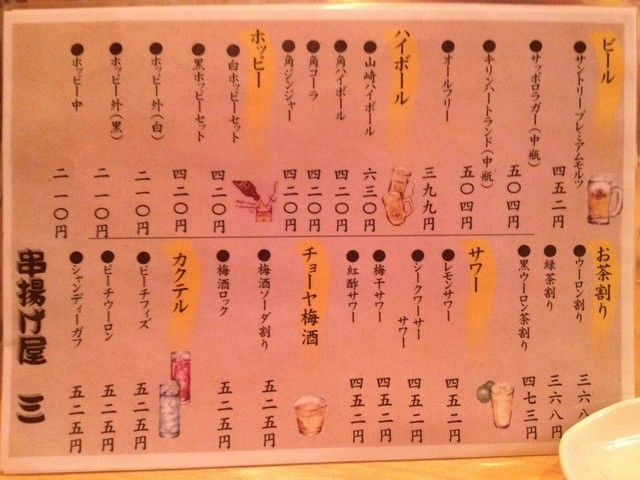 ビール
●サントリー プレミアムモルツ 四五二円
●サッポロラガー(中瓶) 五〇四円
●キリンハートランド(中瓶) 五〇四円
●オールフリー 三九九円
ハイボール
●山崎ハイボール 六三〇円
●角ハイボール 四二〇円
●角コーラ 四二〇円
●角ジンジャー 四二〇円
ホッピー
●白ホッピーセット 四二〇円
●黒ホッピーセット 四二〇円
●ホッピー外(白) 二一〇円
●ホッピー外(黒) 二一〇円
●ホッピー中 二一〇円
お茶割り
●ウーロン割り 三六八
●緑茶割り 三六八円
●黒ウーロン茶割り 四七三円
サワー
●レモンサワー 四五二円
●シークワーサーサワー 四五二円
●梅干サワー 四五二円
●紅酢サワー 四五二円
チョーヤ梅酒
●梅酒ソーダ割り 五二五円
●梅酒ロック 五二五円
カクテル
●ピーチフィズ 五二五円
●ピーチウーロン 五二五円
●シャンディーガフ 五二五円
串揚げ屋 三